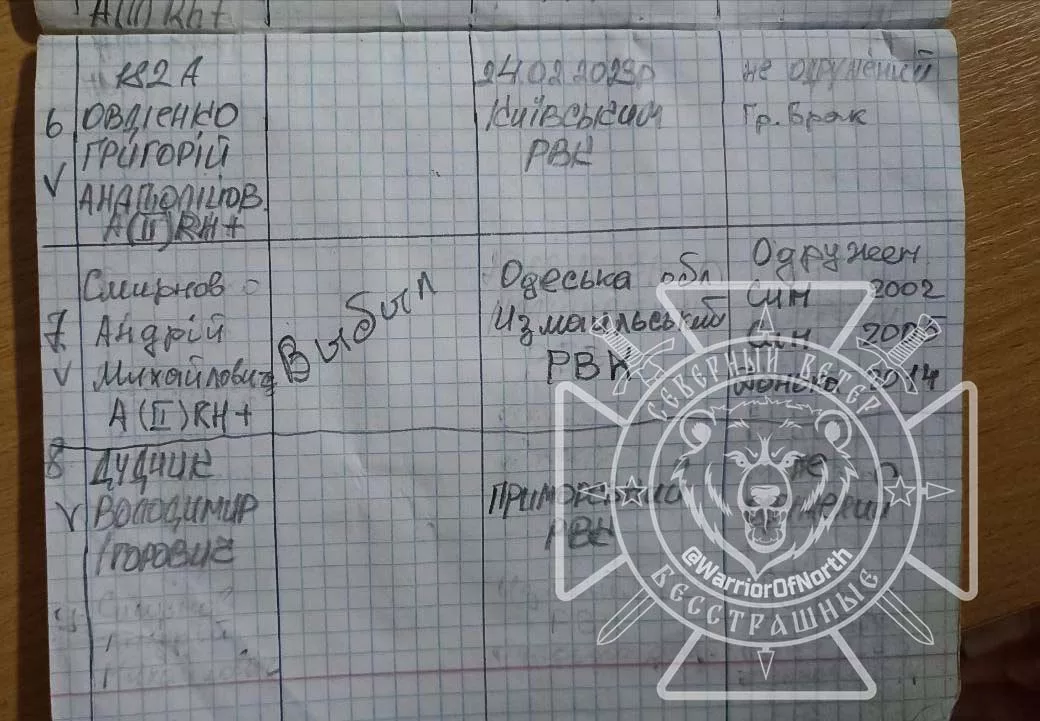 A(II) Rh+
6
ОВДІЄНКО
ГРИГОРІЙ
V
A(II)RH+
24.02.2023р
Київським
РВК
не одружений
Гр. Брак
7
V
Смирнов
Андрій
Михайлович
A(II)RH+
Выбыл
Одеська обл
Измаильський
РВК
Одружен
син 2002
син
2014
8
V
ДУДЧИК
ВОЛОДИМИР
ІГОРОВИЧ
РВК
не
СЕВЕРНЫЙ ВЕТЕР
@WarriorOfNorth
БЕССТРАШНЫЕ